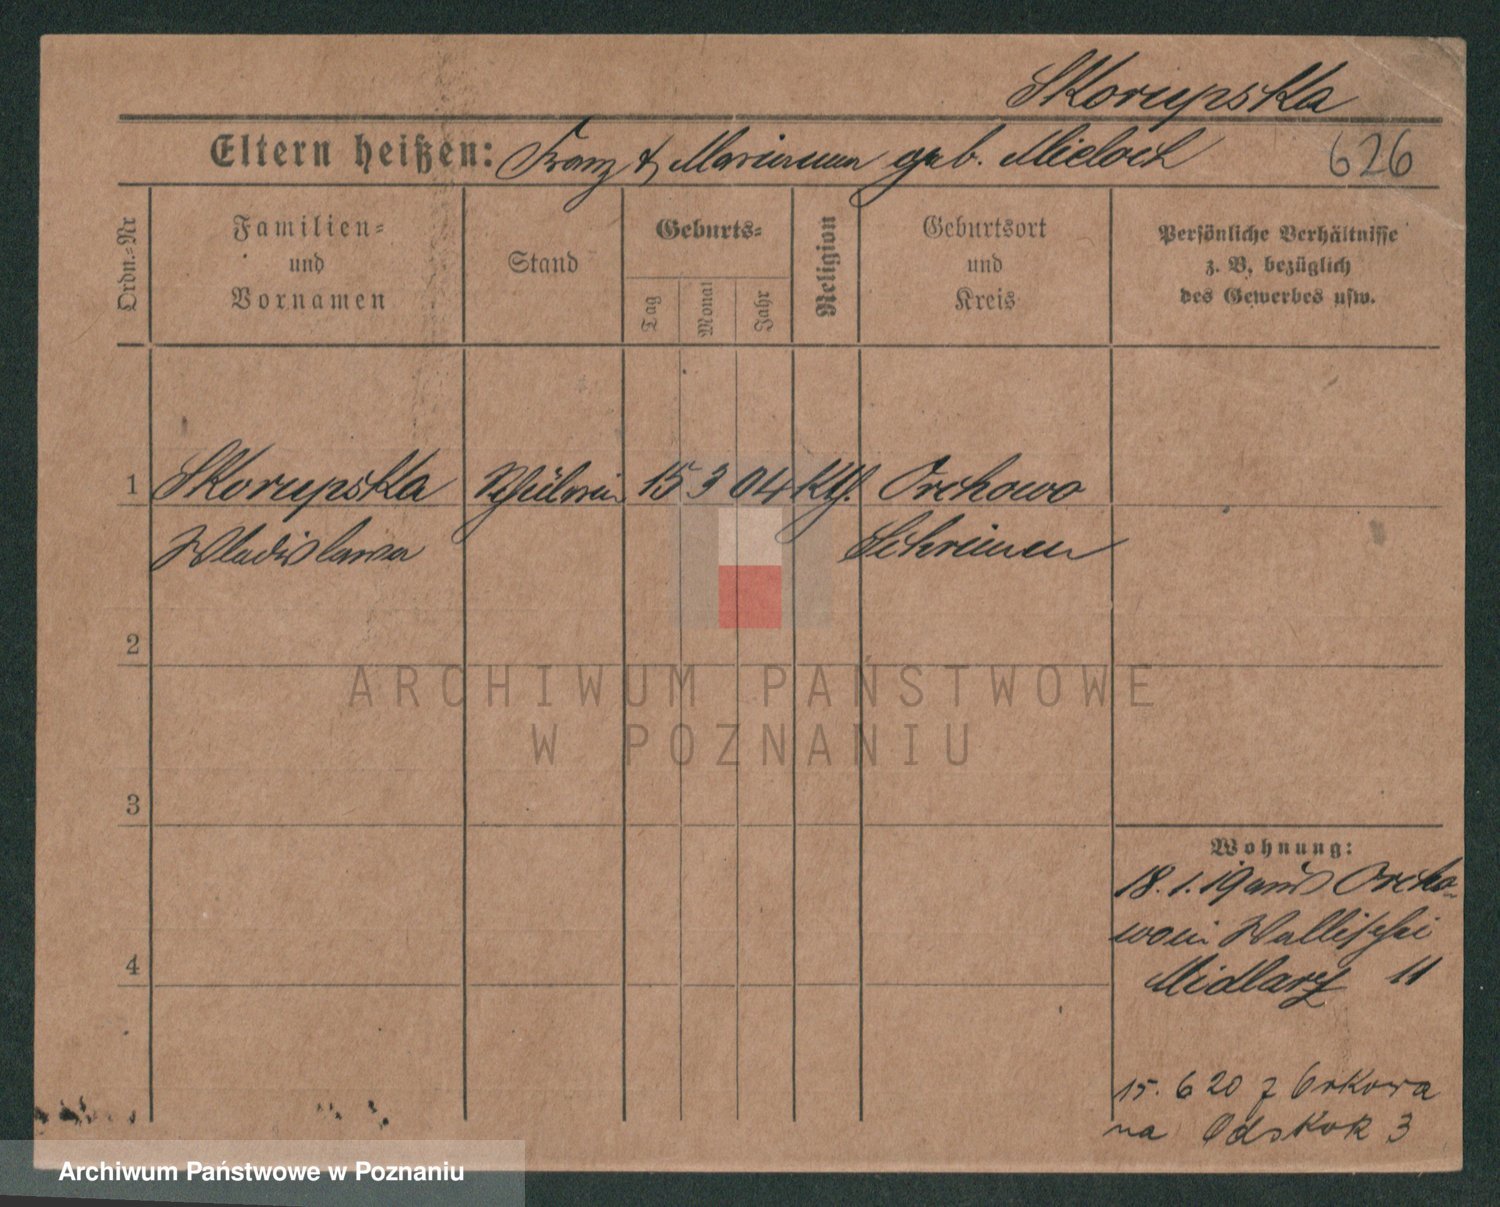 Skorupska
Eltern heißen: Franz & Marianna geb. Mieloch 626
Ordn.=Nr
Familien=
und
Vornamen
Stand
Geburts=
Tag
Monat
Jahr
Religion
Geburtsort
und
Kreis
Persönliche Verhältnisse
z. B. bezüglich
des Gewerbes usw.
1 Skorupska Schülerin 15 3 04 kth. Orchowo
Wladislawa
2
3
4
Wohnung:
18.1.19 aus Orcho-
wo in Wallischei
11
15. 6 20 z
na Odskok 3
ARCHIWUM PAŃSTWOWE
W POZNANIU
Archiwum Państwowe w Poznaniu